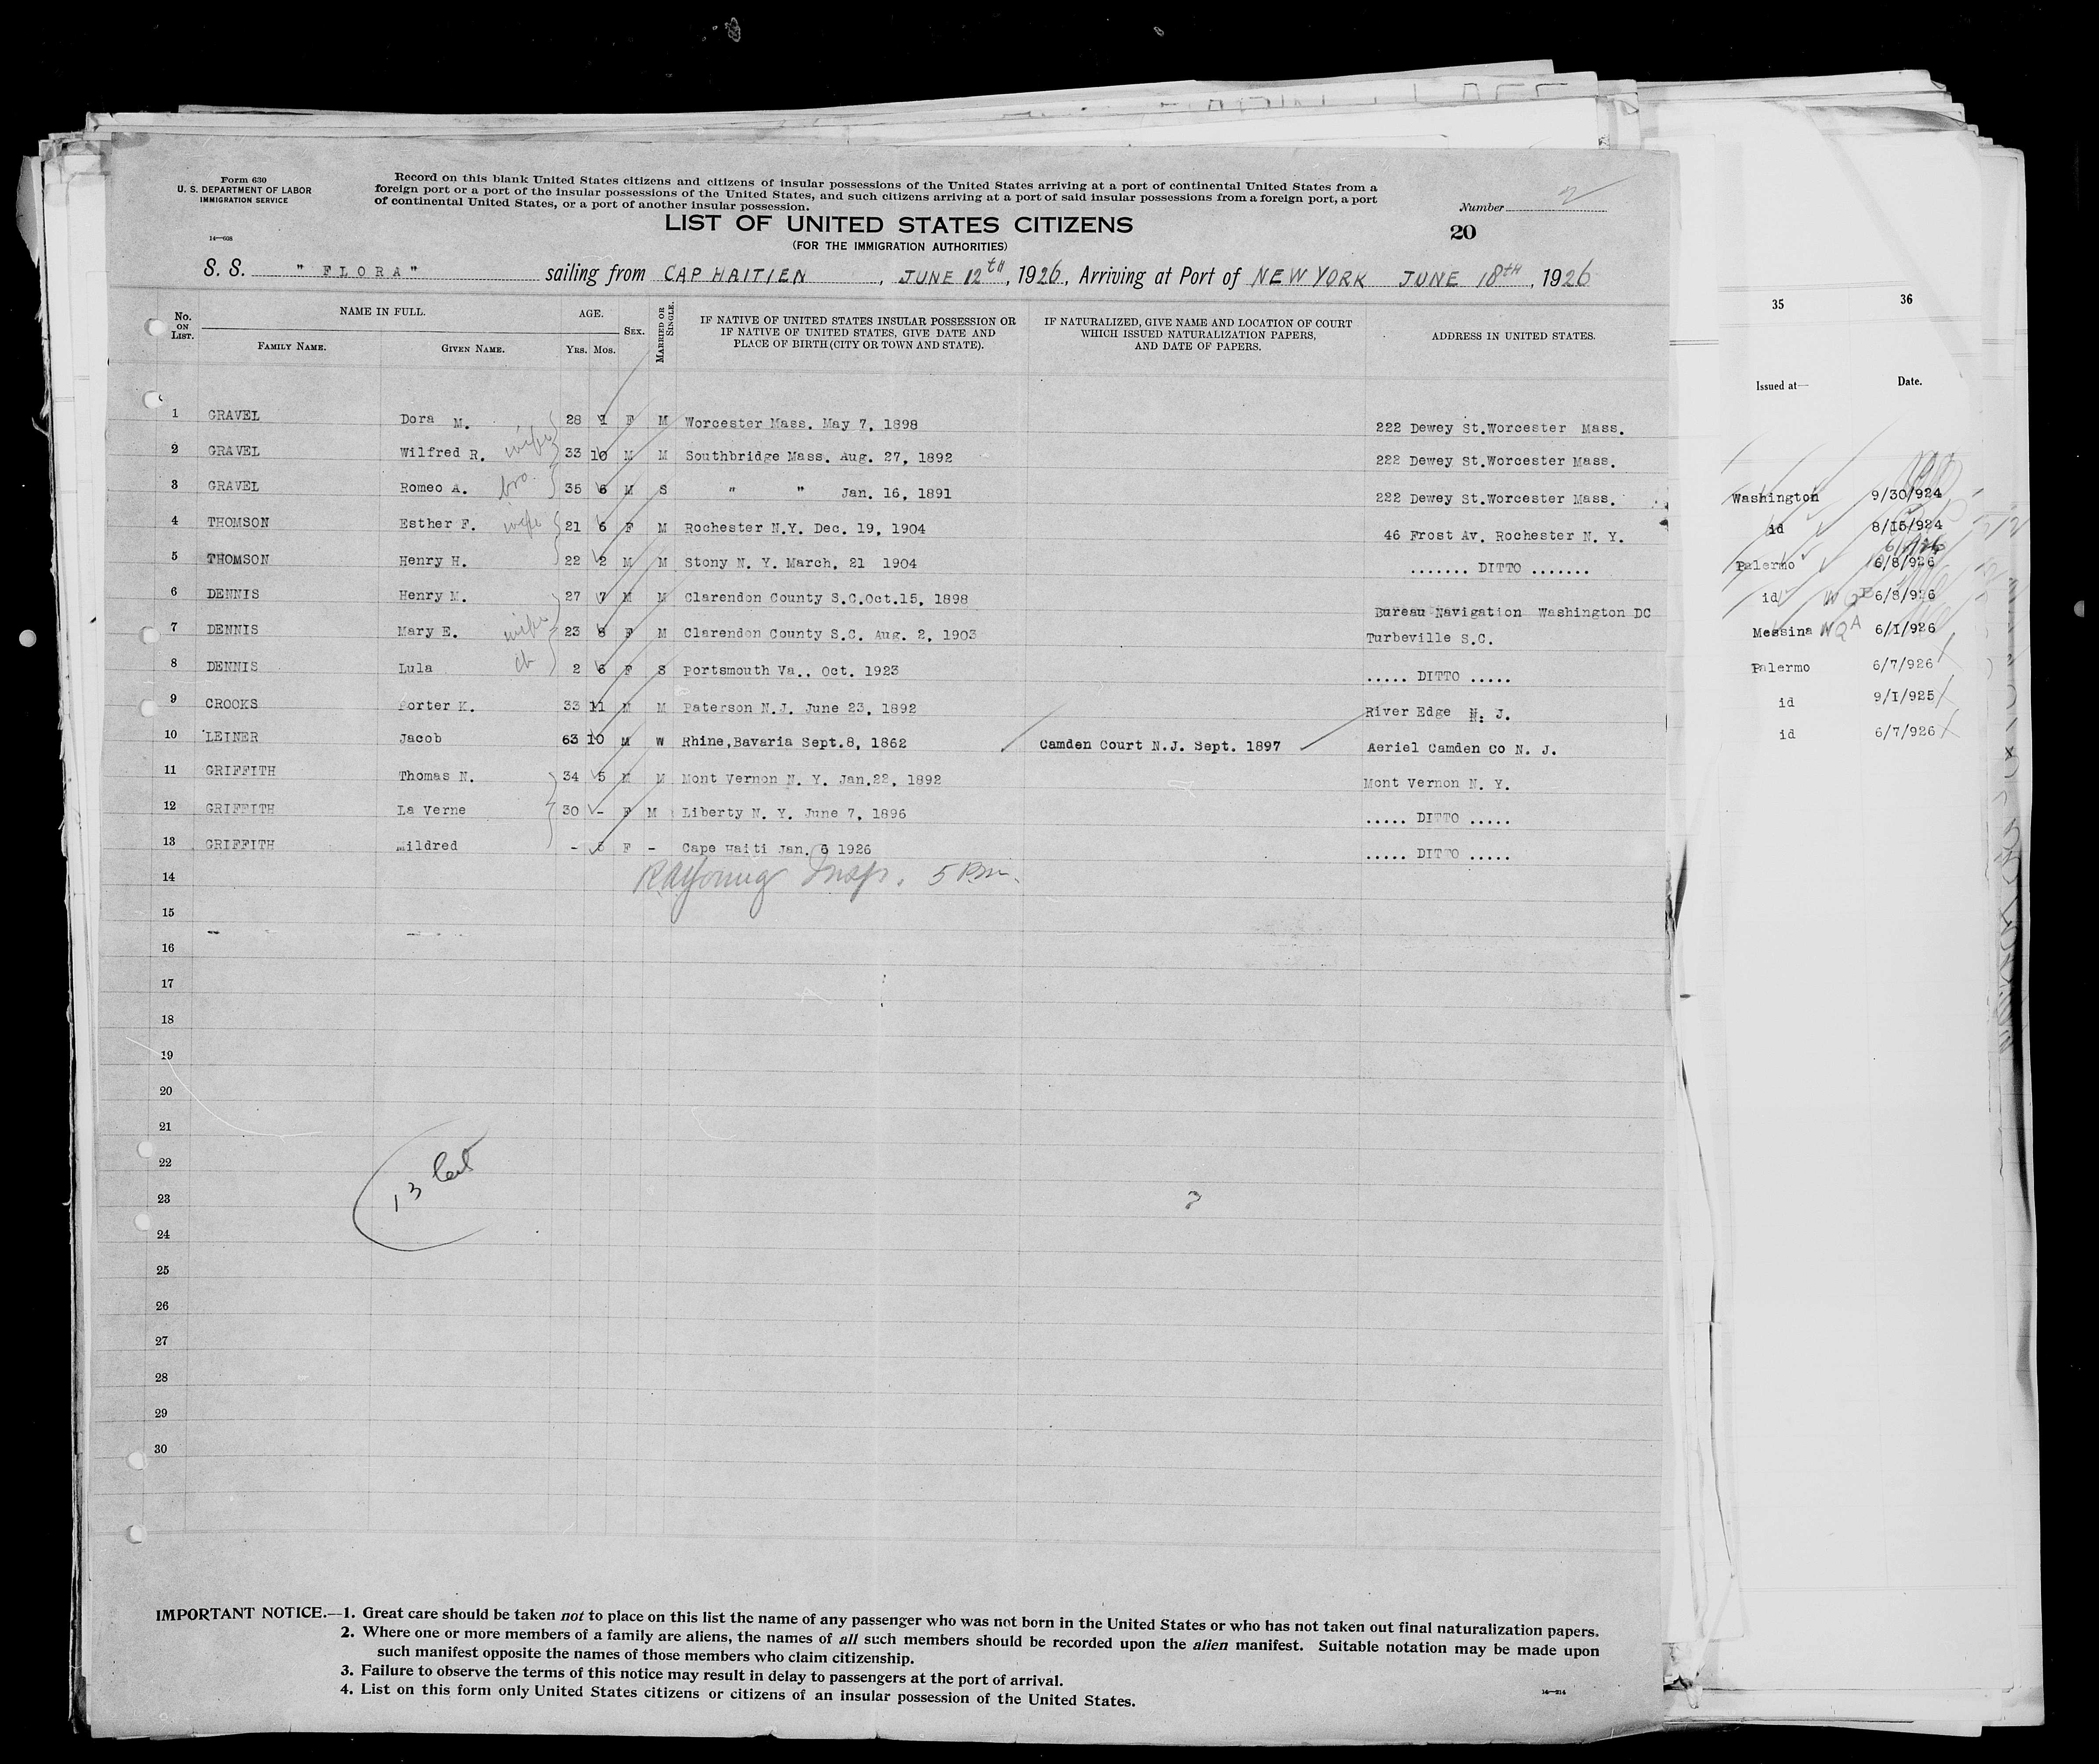 Form 630
U. S. DEPARTMENT OF LABOR
IMMIGRATION SERVICE
14—608
Record on this blank United States citizens and citizens of insular possessions of the United States arriving at a port of continental United States from a
foreign port or a port of the insular possessions of the United States, and such citizens arriving at a port of said insular possessions from a foreign port, a port
of continental United States, or a port of another insular possession.
LIST OF UNITED STATES CITIZENS
(FOR THE IMMIGRATION AUTHORITIES)
Number 2
20
S. S. " FLORA" sailing from CAP HAITIEN, JUNE 12th, 1926, Arriving at Port of NEW YORK JUNE 18TH, 1926
No. ON LIST.
NAME IN FULL.
FAMILY NAME. GIVEN NAME.
AGE.
YRS. MOS.
SEX.
MARRIED OR SINGLE.
IF NATIVE OF UNITED STATES INSULAR POSSESSION OR
IF NATIVE OF UNITED STATES, GIVE DATE AND
PLACE OF BIRTH (CITY OR TOWN AND STATE).
IF NATURALIZED, GIVE NAME AND LOCATION OF COURT
WHICH ISSUED NATURALIZATION PAPERS,
AND DATE OF PAPERS.
ADDRESS IN UNITED STATES.
1 GRAVEL Dora M. wife 28 1 F M Worcester Mass. May 7, 1898 222 Dewey St.Worcester Mass.
2 GRAVEL Wilfred R. 33 10 M M Southbridge Mass. Aug. 27, 1892 222 Dewey St.Worcester Mass.
3 GRAVEL Romeo A. bro. 35 6 M S " " Jan. 16, 1891 222 Dewey St.Worcester Mass.
4 THOMSON Esther F. wife 21 6 F M Rochester N.Y. Dec. 19, 1904 46 Frost Av. Rochester N. Y.
5 THOMSON Henry H. 22 2 M M Stony N. Y. March, 21 1904 ....... DITTO .......
6 DENNIS Henry M. 27 7 M M Clarendon County S.C.Oct.15, 1898 Bureau Navigation Washington DC
7 DENNIS Mary E. wife 23 8 F M Clarendon County S.C. Aug. 2, 1903 Turbeville S.C.
8 DENNIS Lula ch 2 6 F S Portsmouth Va.. Oct. 1923 ..... DITTO .....
9 CROOKS Porter K. 33 11 M M Paterson N.J. June 23, 1892 River Edge N. J.
10 LEINER Jacob 63 10 M W Rhine,Bavaria Sept.8, 1862 Camden Court N.J. Sept. 1897 Aeriel Camden Co N. J.
11 GRIFFITH Thomas N. 34 5 M M Mont Vernon N. Y. Jan.22, 1892 Mont Vernon N. Y.
12 GRIFFITH La Verne 30 - F M Liberty N. Y. June 7, 1896 ..... DITTO .....
13 GRIFFITH Mildred - 5 F - Cape Haiti Jan. 6 1926 ..... DITTO .....
14 RA Young Insp. 5 P.m.
15
16
17
18
19
20
21
22
23
24
25
26
27
28
29
30
13
IMPORTANT NOTICE.—1. Great care should be taken not to place on this list the name of any passenger who was not born in the United States or who has not taken out final naturalization papers.
2. Where one or more members of a family are aliens, the names of all such members should be recorded upon the alien manifest. Suitable notation may be made upon
such manifest opposite the names of those members who claim citizenship.
3. Failure to observe the terms of this notice may result in delay to passengers at the port of arrival.
4. List on this form only United States citizens or citizens of an insular possession of the United States.
14—214
35 36
Issued at— Date.
Washington 9/30/924
id 8/15/924
Palermo 6/8/926
id 6/8/926
Messina NQA 6/1/926
Palermo 6/7/926
id 9/1/925
id 6/7/926